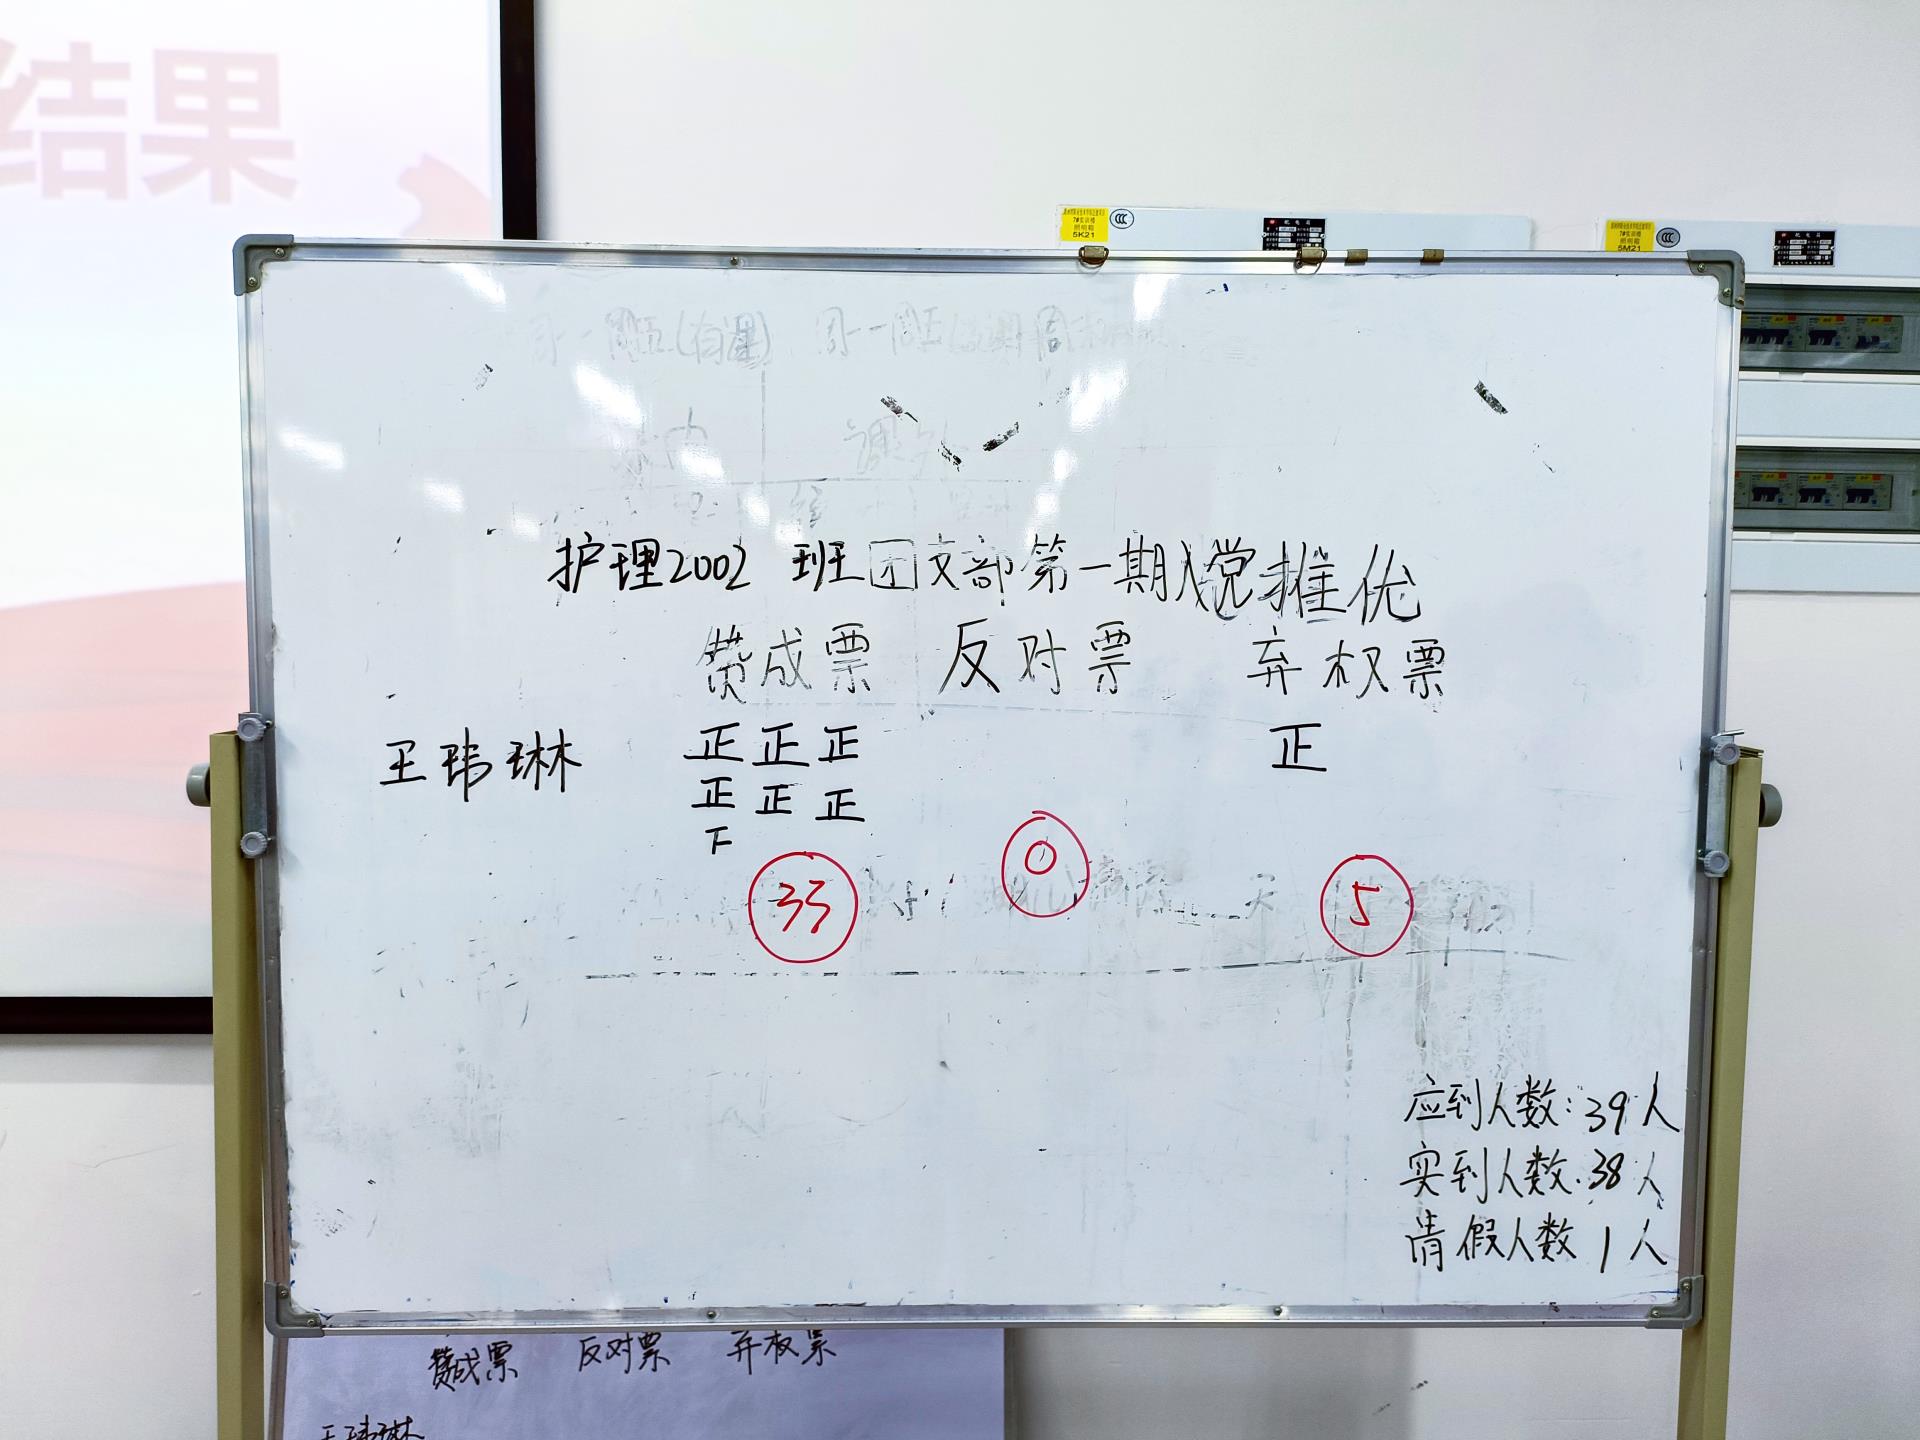 结果
5K21
5M21
护理2002 班团支部第一期入党推优
赞成票 反对票 弃权票
王玮琳 正正正 正
正正正
下
33 0 5
应到人数:39人
实到人数:38人
请假人数 1人
赞成票 反对票 弃权票
王玮琳